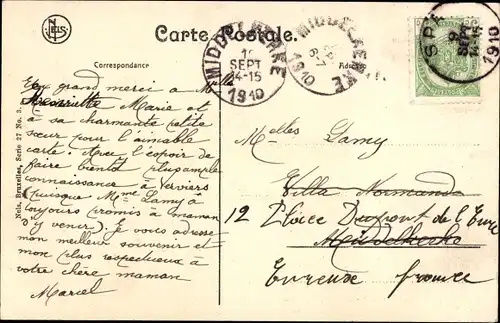 NELS
Carte Postale.
Correspondance
Adresse
MIDDELKERKE
10
SEPT
14-15
1910
MIDDELKERKE
1910
SPA
9
SEPT
1910
Nels, Bruxelles, Serie 27 No. 3.
Un grand merci à Mlle
Henriette Marie et
à sa charmante petite
sœur pour l'aimable
carte; Avec l'espoir de
faire bientôt plus ample
connaissance à Verviers
(puisque Mme Lamy a
toujours promis à maman
d'y venir). Je vous adresse
mon meilleur souvenir et
mon plus respectueux à
votre chère maman
Marcel
Melles Lamy
Villa Normande
12 Place Dupont de l'Eure
Middelkerke
Evreuse france